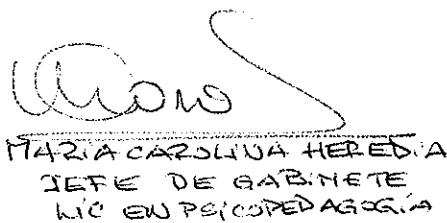 MARIA CAROLINA HEREDIA
JEFE DE GABINETE
LIC EN PSICOPEDAGOGÍA